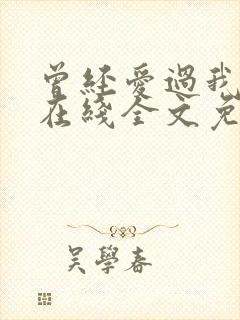 曾经爱過我
在綫全文免
吴學春